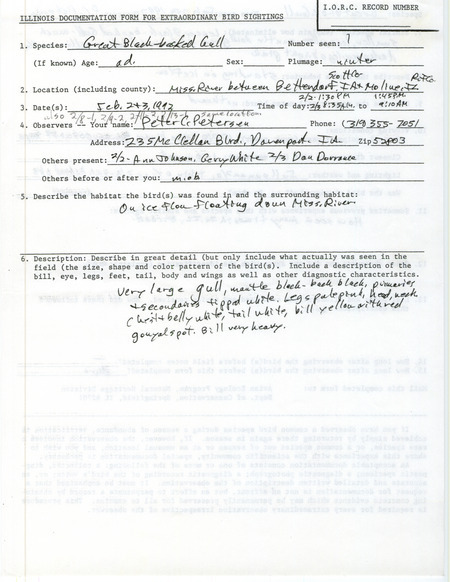 I.O.R.C. RECORD NUMBER
ILLINOIS DOCUMENTATION FORM FOR EXTRAORDINARY BIRD SIGHTINGS
1. Species: Great Black-backed Gull Number seen: 1
(If known) Age: ad. Sex: Plumage: winter
Scott Co. R.I. Co.
2. Location (including county): Miss. River between Bettendorf, IA & Moline, IL
2/2-1:30PM 1:45PM
3. Date(s): Feb. 2 & 3, 1992 Time of day: 2/3 8:35AM to 9:10AM
also 2/8-1, 2/9-2, same location
4. Observers -- Your name: Peter C. Petersen Phone: (319) 355-7051
Address: 235 McClellan Blvd., Davenport IA Zip 52803
Others present: 2/2- Ann Johnson, Gerry White 2/3 Dan
Others before or after you: m.ob
5. Describe the habitat the bird(s) was found in and the surrounding habitat:
On ice flow floating down Miss. River
6. Description: Describe in great detail (but only include what actually was seen in the
field (the size, shape and color pattern of the bird(s). Include a description of the
bill, eye, legs, feet, tail, body and wings as well as other diagnostic characteristics.
Very large gull, mantle black- back black, primaries
& secondaries tipped white. Legs pale pink, head, neck
chest & belly white, tail white, bill yellow with red
gonyal spot. Bill very heavy.